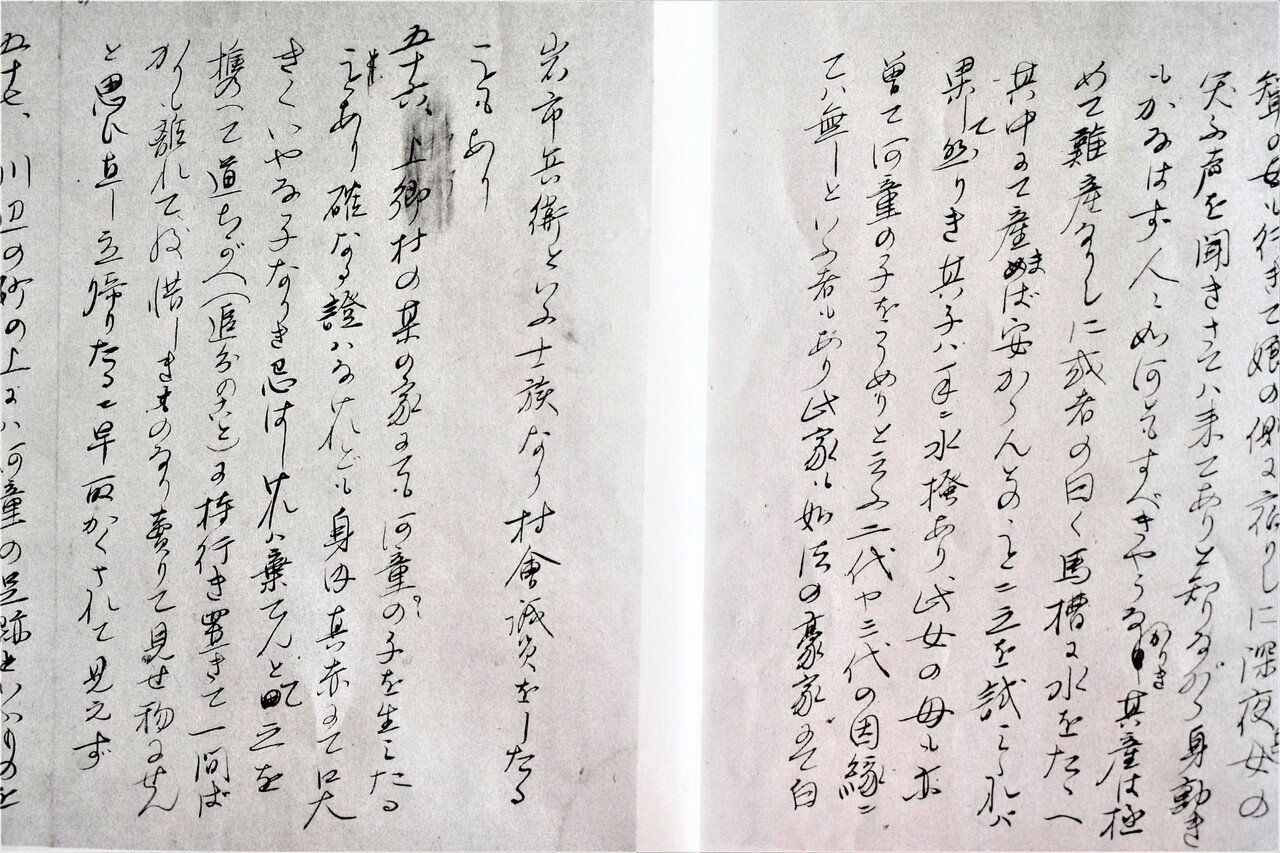 聟の母も行きて娘の側に宿りしに深夜女の
笑ふ声を聞きさては来てありと知りながら身動き
もかなはず人々如何ともすべきやうなかりき其産は極
めて難産なりしに或者の曰く馬槽に水をたゝへ
其中にて産まば安からんとのことニ之を試みたれバ
果して然りき其子ハ手ニ水掻あり此女の母も亦
曽て河童の子をうめりと云ふ二代や三代の因縁ニ
てハ無しといふ者もあり此家も如法の豪家ニて白
岩市兵衛といふ士族なり村会議員をしたる
こともあり
五十六、上郷村の某の家にても河童の子を生みたる
ことあり確なる證ハなけれども身内真赤にて口大
きくいやな子なりき忌はしけれハ棄てんとて之を
携へて道ちがへ(追分のこと)に持行き置きて一間ば
かりも離れて後惜しきものなり売りて見せ物にせん
と思ひ直し立帰りたるニ早取かくされて見えず
五十七、川辺の砂の上にハ河童の足跡といふものを